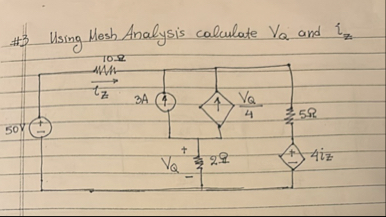 #3 Using Mesh Analysis calculate VQ and iz
10Ω
iz
3A
VQ/4
5Ω
50V
+
-
+
VQ
-
2Ω
+
-
4iz